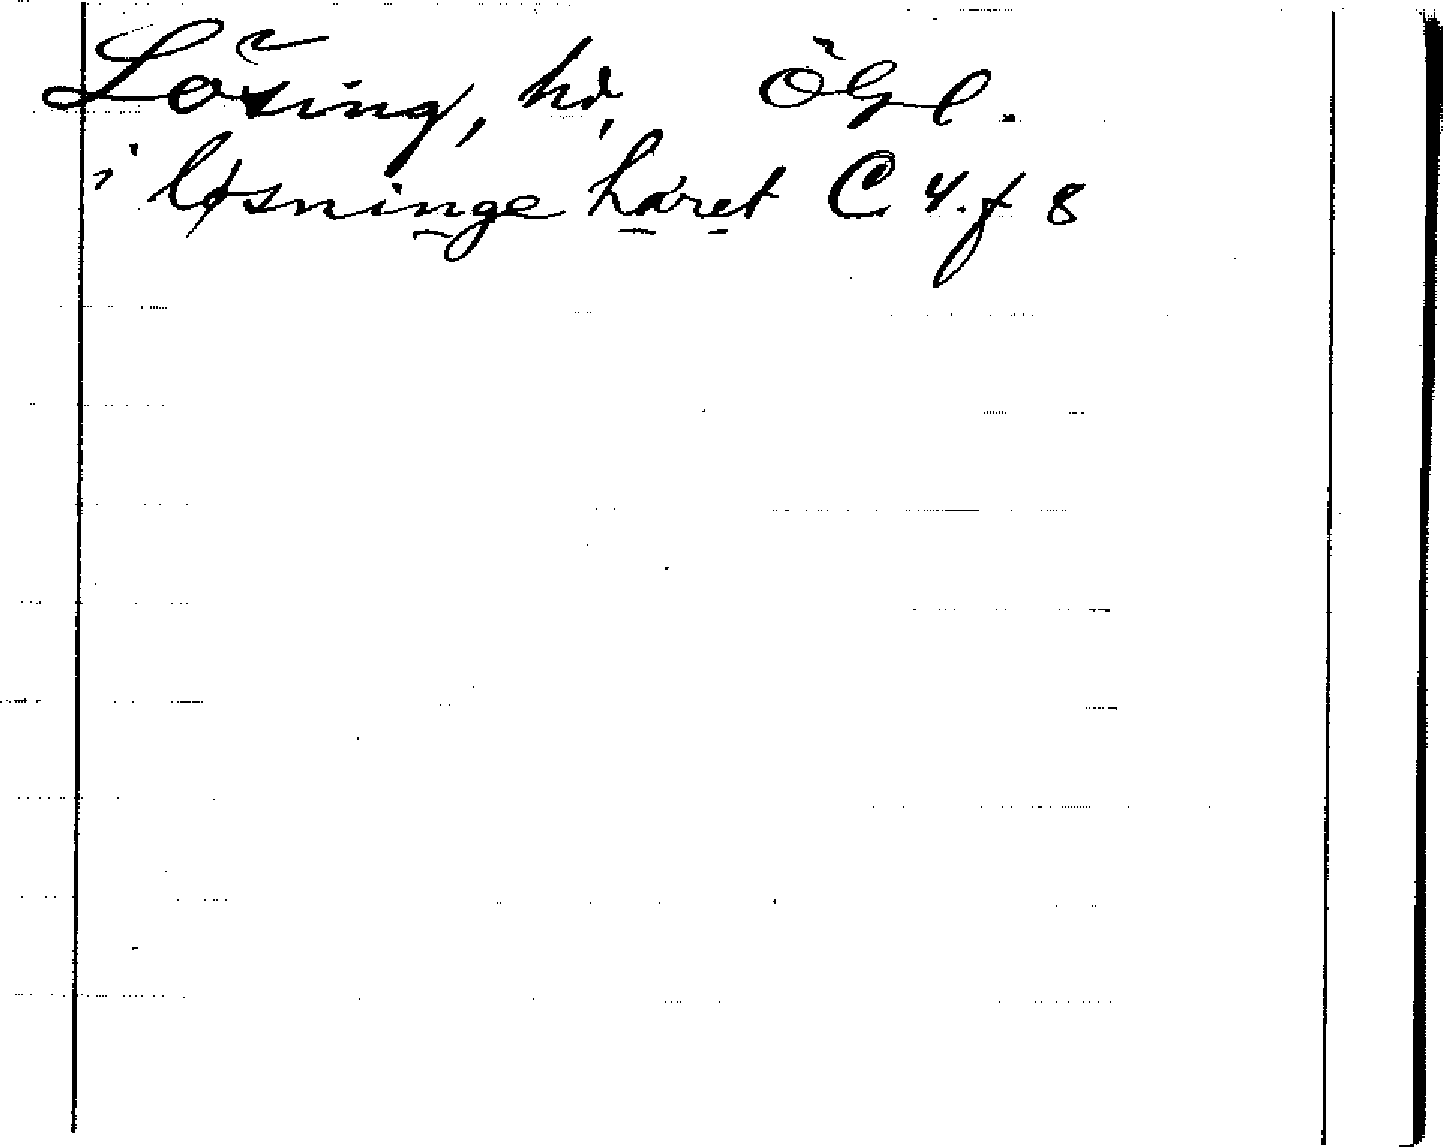 Lösing, hd, ÖGl.
i løsninge häret C 4. f 8